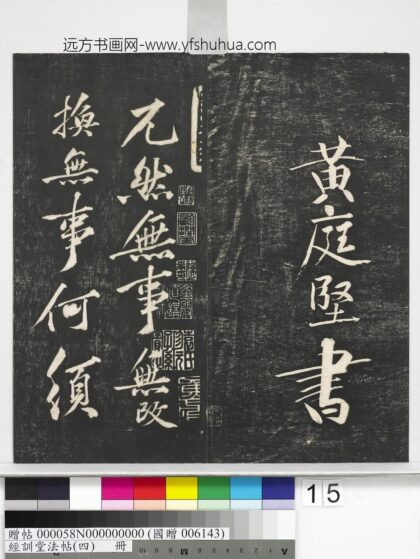 远方书画网-www.yfshuhua.com
黃庭堅書
兀然無事無改
換無事何須
15
贈帖 000058N000000000 (國贈 006143)
經訓堂法帖(四) 冊